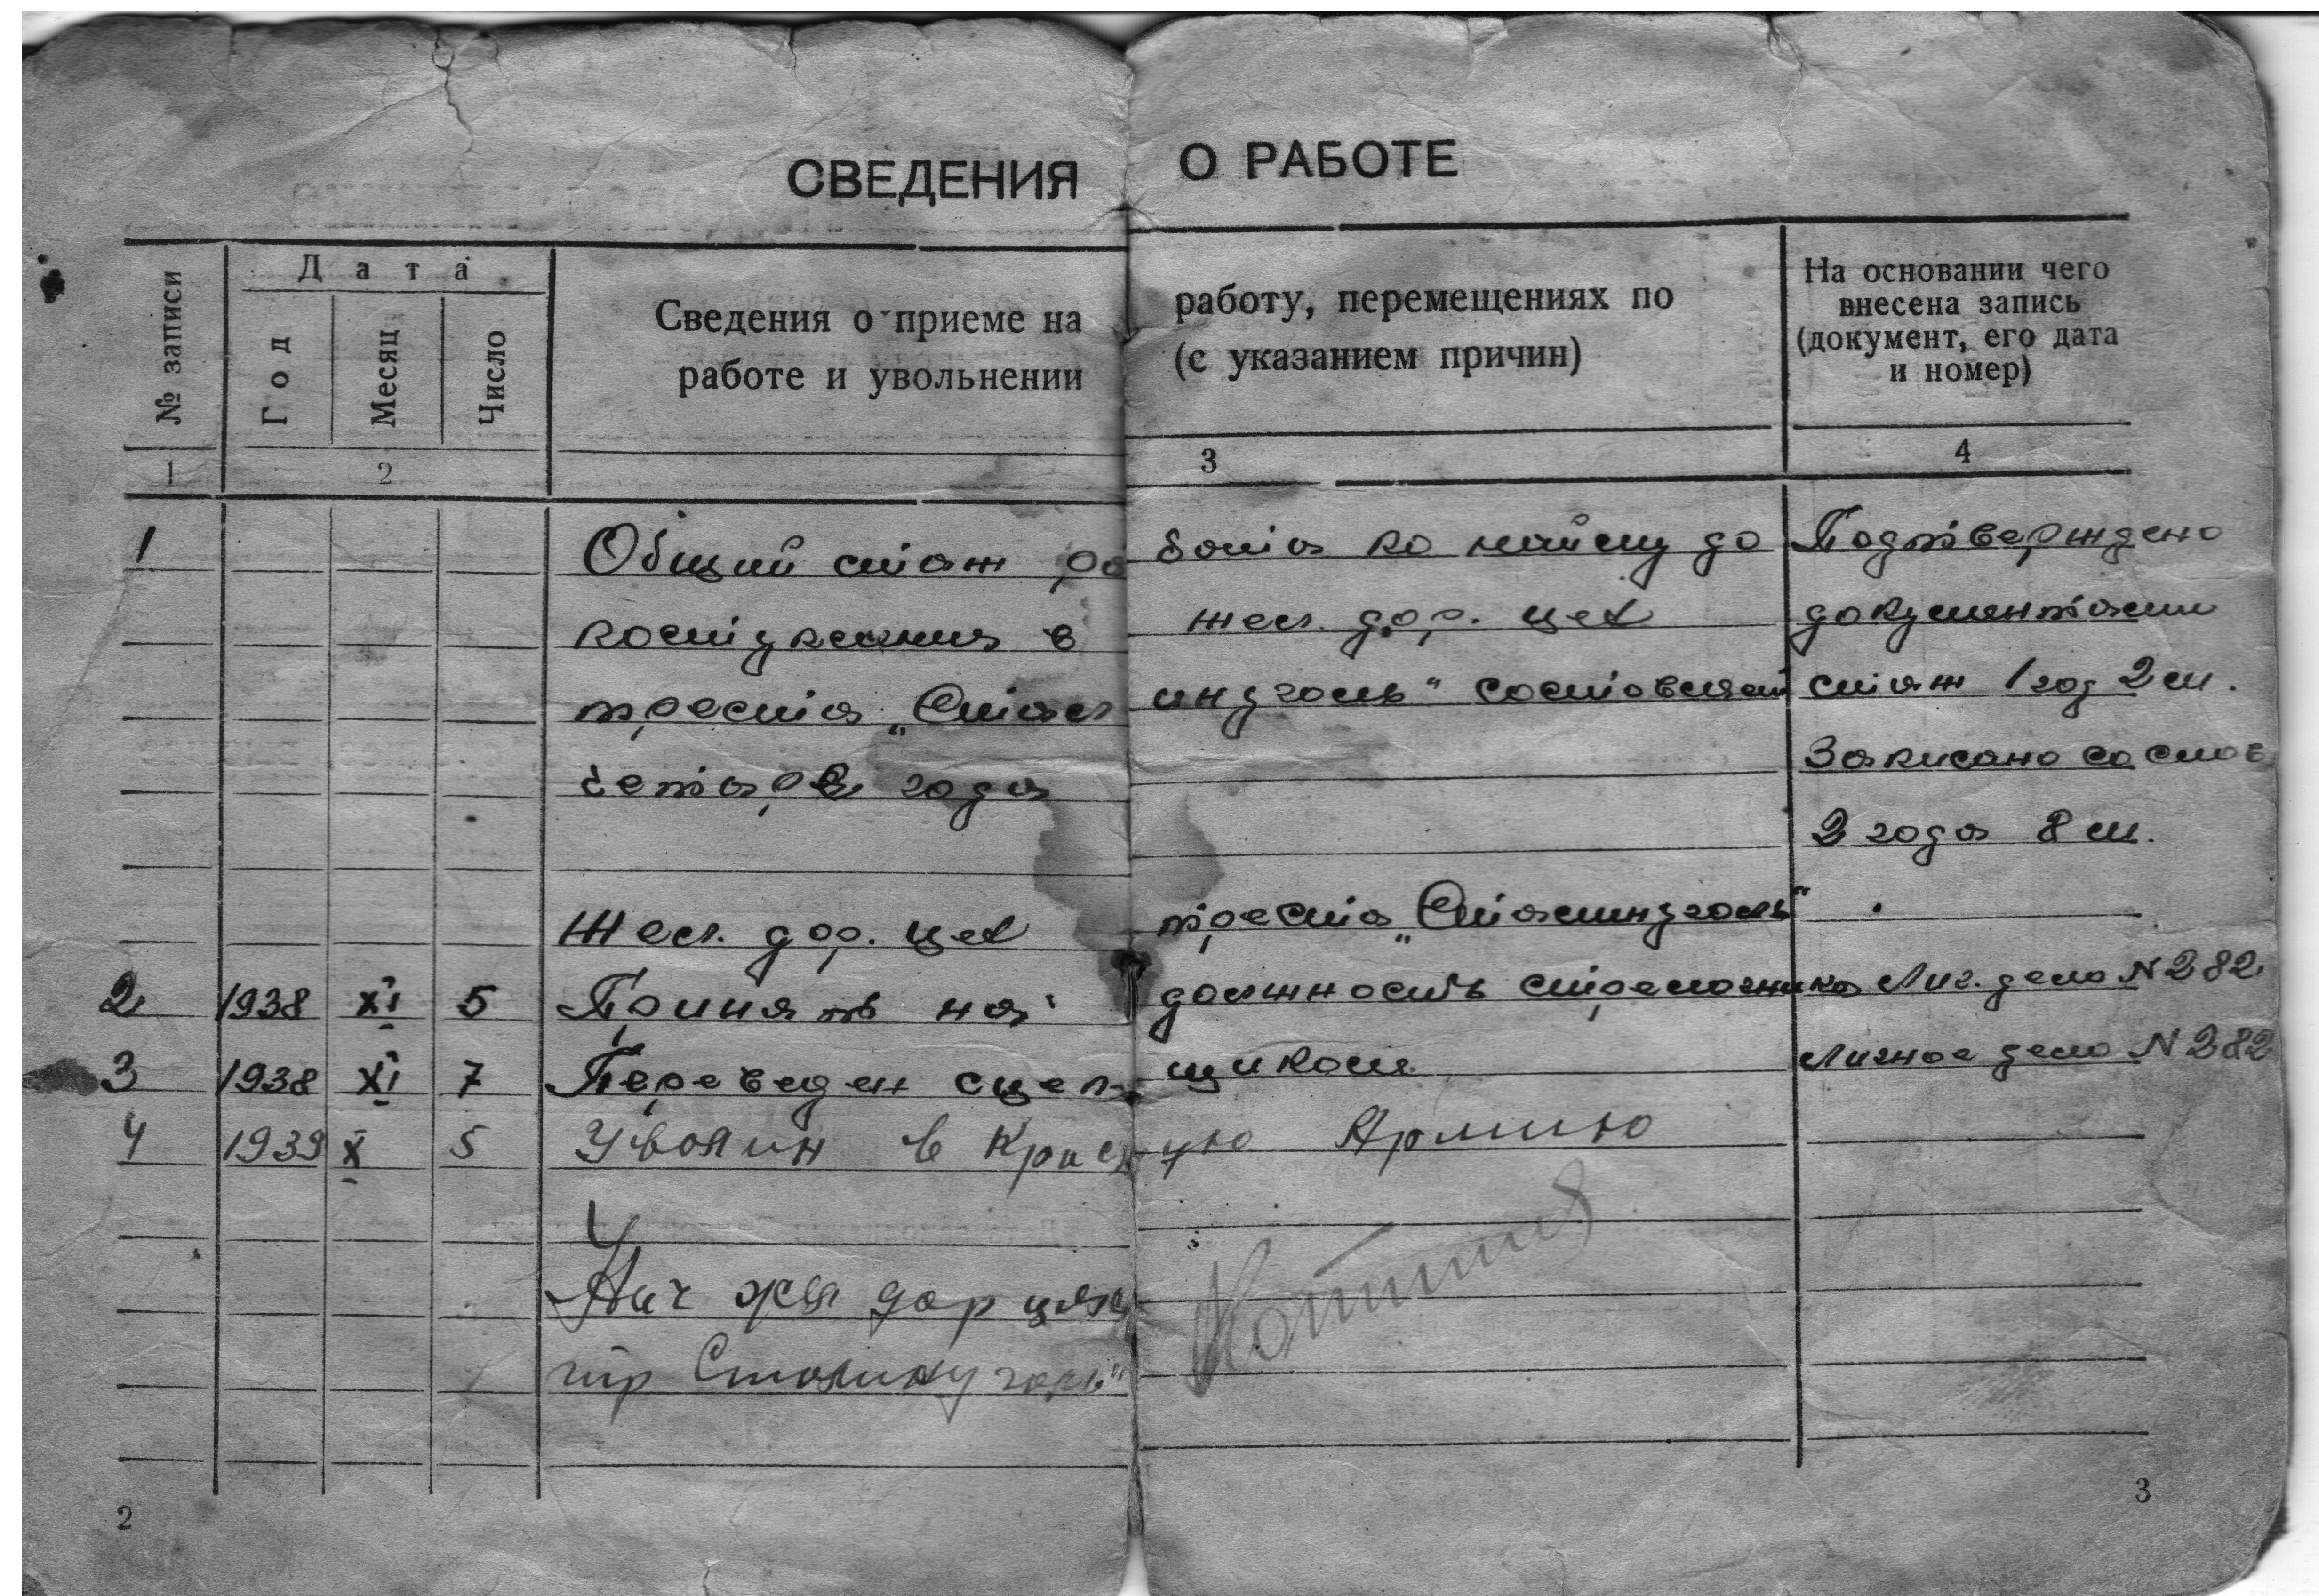 СВЕДЕНИЯ О РАБОТЕ
№ записи
Дата
Год
Месяц
Число
Сведения о приеме на работу, перемещениях по
работе и увольнении (с указанием причин)
На основании чего
внесена запись
(документ, его дата
и номер)
1 2 3 4
1 Общий стаж работа по найму до Подтверждено
поступления в жел. дор. цех документами
треста „Сталинуголь“ составляет стаж 1 год 2 м.
четыре года Записано со слов
2 года 8 м.
Жел. дор. цех треста „Сталинуголь“
2 1938 XI 5 Принят на должность стрелочника Лич. дело N 282
3 1938 XI 7 Переведен сцепщиком Личное дело N 282
4 1939 X 5 Уволин в Красную Армию
Нач жел дор цеха
тр Сталинуголь"
2
3